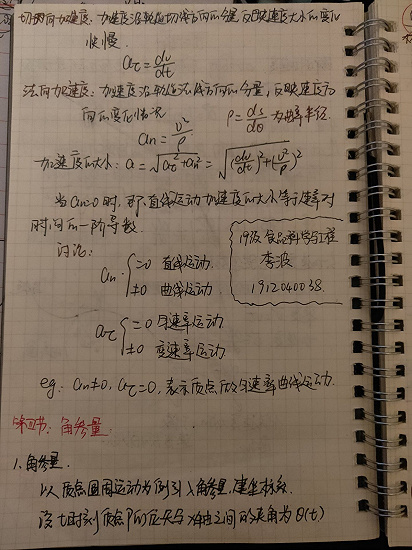 切向加速度:加速度沿轨迹切线方向的分量,反映速度大小的变化
快慢.
aτ = dv/dt
法向加速度:加速度沿轨迹法线方向的分量,反映速度方
向的变化情况
an = v²/ρ ρ = ds/dθ 为曲率半径.
加速度的大小: a = √(aτ² + an²) = √((dv/dt)² + (v²/ρ)²)
当an=0时,即直线运动加速度的大小等于速率对
时间的一阶导数.
讨论:
an {=0 直线运动.
≠0 曲线运动.
19级食品科学与工程
李波
1912040038.
aτ {=0 匀速率运动
≠0 变速率运动
eg: an≠0, aτ=0, 表示质点做匀速率曲线运动.
第四节:角参量
1.角参量.
以质点圆周运动为例引入角参量,建坐标系.
设t时刻质点P的位矢与x轴之间的夹角为θ(t)